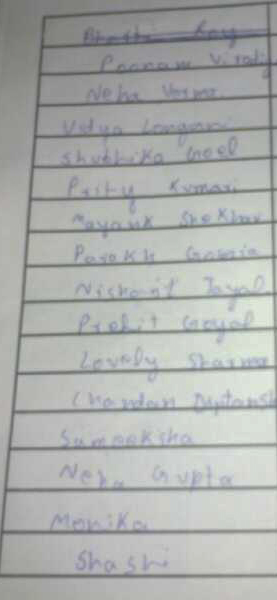 Bharti Roy
Poonam Virdi
Neha Verma
Vidya Longani
Shubhika Goel
Prity Kumari
Mayank Shekhar
Parakh
Nishant Tayal
Prohit Goyal
Lovely Sharma
Chandan
Sameeksha
Neha Gupta
Monika
Shashi